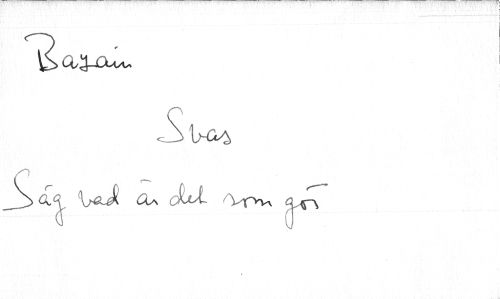 Bazain
Svas
Säg vad är det som gör